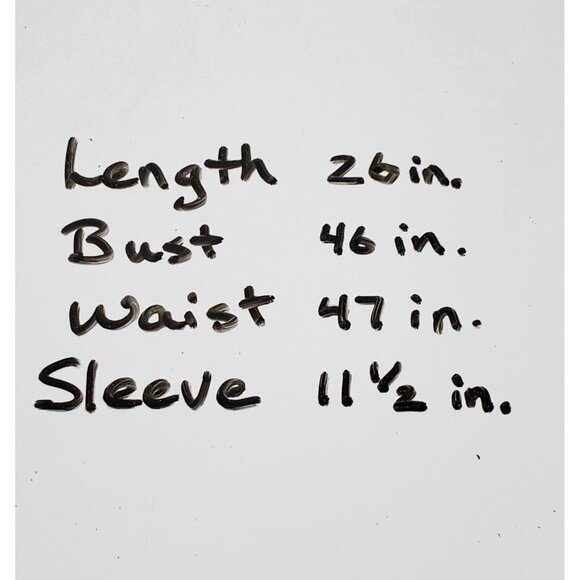 Length 26 in.
Bust 46 in.
Waist 47 in.
Sleeve 11 1/2 in.